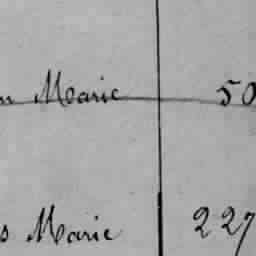 n Marie 50
s Marie 227